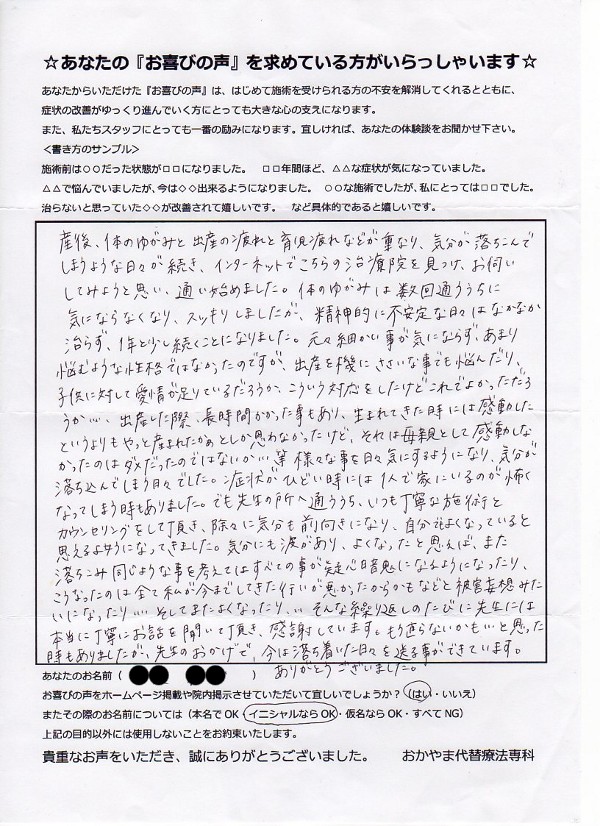 ☆あなたの『お喜びの声』を求めている方がいらっしゃいます☆
あなたからいただけた『お喜びの声』は、はじめて施術を受けられる方の不安を解消してくれるとともに、
症状の改善がゆっくり進んでいく方にとっても大きな心の支えになります。
また、私たちスタッフにとっても一番の励みになります。宜しければ、あなたの体験談をお聞かせ下さい。
＜書き方のサンプル＞
施術前は○○だった状態が□□になりました。 □□年間ほど、△△な症状が気になっていました。
△△で悩んでいましたが、今は◇◇出来るようになりました。 ○○な施術でしたが、私にとっては□□でした。
治らないと思っていた◇◇が改善されて嬉しいです。 など具体的であると嬉しいです。
産後、体のゆがみと出産の疲れと育児疲れなどが重なり、気分が落ちこんで
しまうような日々が続き、インターネットでこちらの治療院を見つけ、お伺い
してみようと思い、通い始めました。体のゆがみは数回通ううちに
気にならなくなり、スッキリしましたが、精神的に不安定な日々はなかなか
治らず、1年と少し続くことになりました。元々細かい事が気にならず、あまり
悩むような性格ではなかったのですが、出産を機にささいな事でも悩んだり、
子供に対して愛情が足りているだろうか、こういう対応をしたけどこれでよかっただろ
うか…、出産した際、長時間かかった事もあり、生まれてきた時には感動した
というよりもやっと産まれたかぁとしか思わなかったけど、それは母親として感動しな
かったのはダメだったのではないか…等様々な事を日々気にするようになり、気分が
落ち込んでしまう日々でした。症状がひどい時には1人で家にいるのが怖く
なってしまう時もありました。でも先生の所へ通ううち、いつも丁寧な施術と
カウンセリングをして頂き、除々に気分も前向きになり、自分でもよくなっていると
思えるようになってきました。気分にも波があり、よくなったと思えば、また
落ちこみ同じような事を考えてはすべての事が疑心暗鬼になるようになったり、
こうなったのは全て私が今までしてきた行いが悪かったからかもなどと被害妄想みた
いになったり…そしてまたよくなったり、…そんな繰り返しのたびに先生には
本当に丁寧にお話を聞いて頂き、感謝しています。もう直らないかも…と思った
時もありましたが、先生のおかげで、今は落ち着いた日々を送る事ができています。
ありがとうございました。
あなたのお名前（ ）
お喜びの声をホームページ掲載や院内掲示させていただいて宜しいでしょうか？（はい・いいえ）
またその際のお名前については（本名でOK・イニシャルならOK・仮名ならOK・すべてNG）
上記の目的以外には使用しないことをお約束いたします。
貴重なお声をいただき、誠にありがとうございました。 おかやま代替療法専科